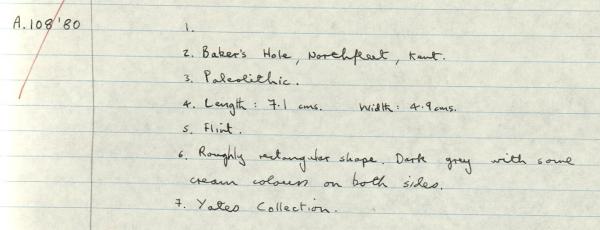 A.108'80
1.
2. Baker's Hole, Northfleet, Kent.
3. Paleolithic.
4. Length: 7.1 cms. Width: 4.9cms.
5. Flint.
6. Roughly rectangular shape. Dark grey with some
cream colours on both sides.
7. Yates Collection.